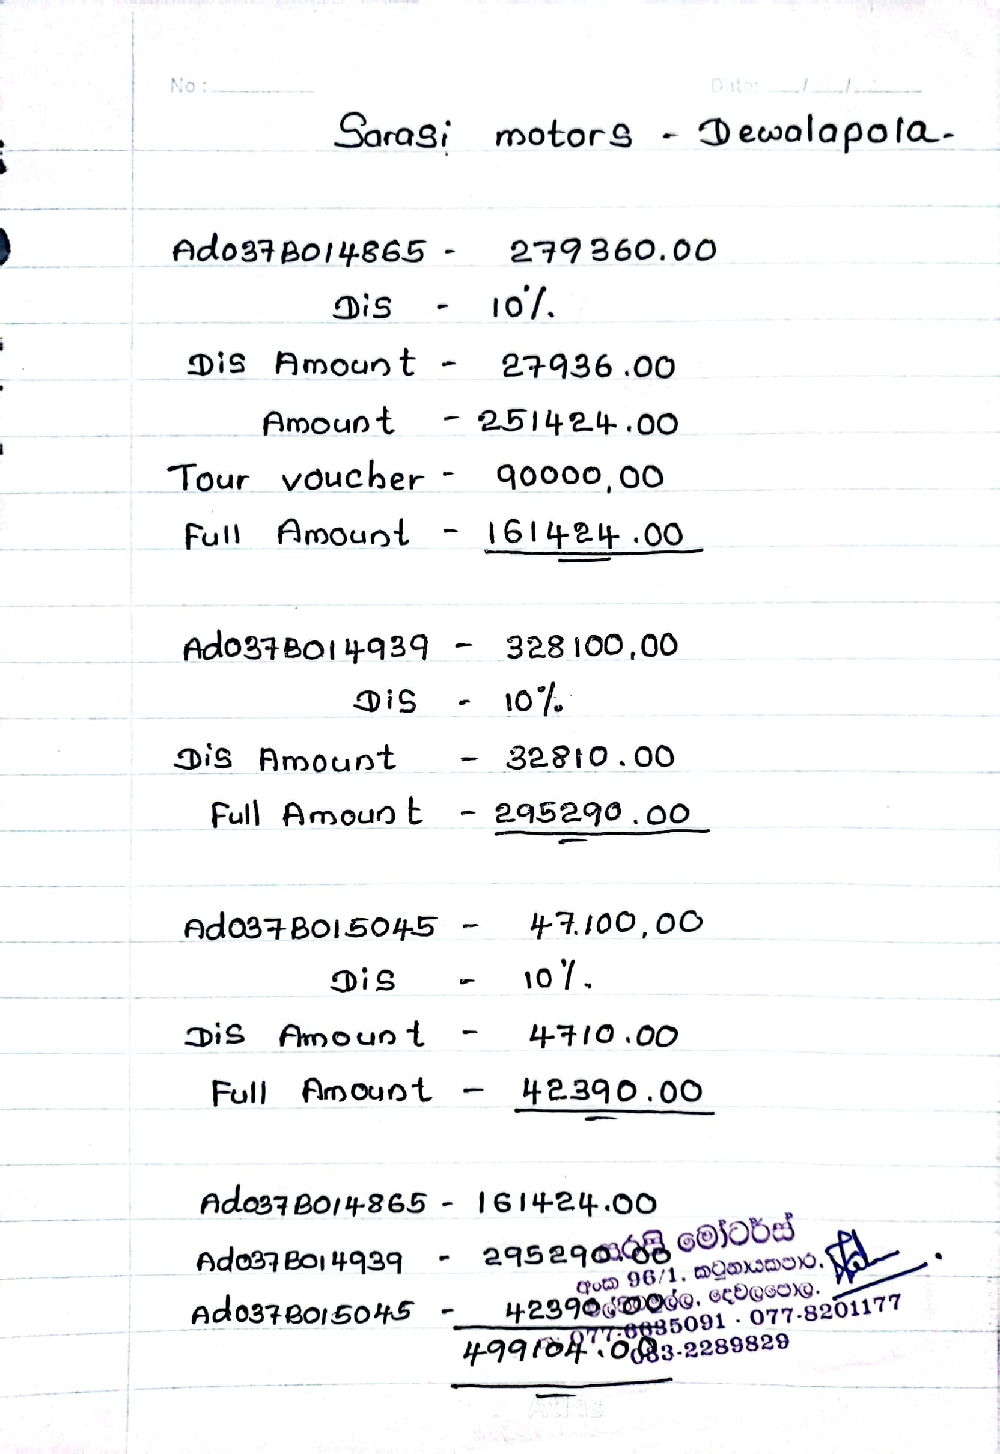 No : Date: / /
Sarasi motors - Dewalapola-
Ad037B014865 - 279360.00
Dis - 10%.
Dis Amount - 27936.00
Amount - 251424.00
Tour voucher - 90000,00
Full Amount - 161424.00
Ad037B014939 - 328100,00
Dis - 10%.
Dis Amount - 32810.00
Full Amount - 295290.00
Ad037B015045 - 47.100,00
Dis - 10%.
Dis Amount - 4710.00
Full Amount - 42390.00
Ad037B014865 - 161424.00
Ad037B014939 - 295290.00
Ad037B015045 - 42390.00
499104.00
සරසි මෝටර්ස්
අංක 96/1, කටුනායකපාර,
දෙවලපොල.
077-6635091 · 077-8201177
033-2289829